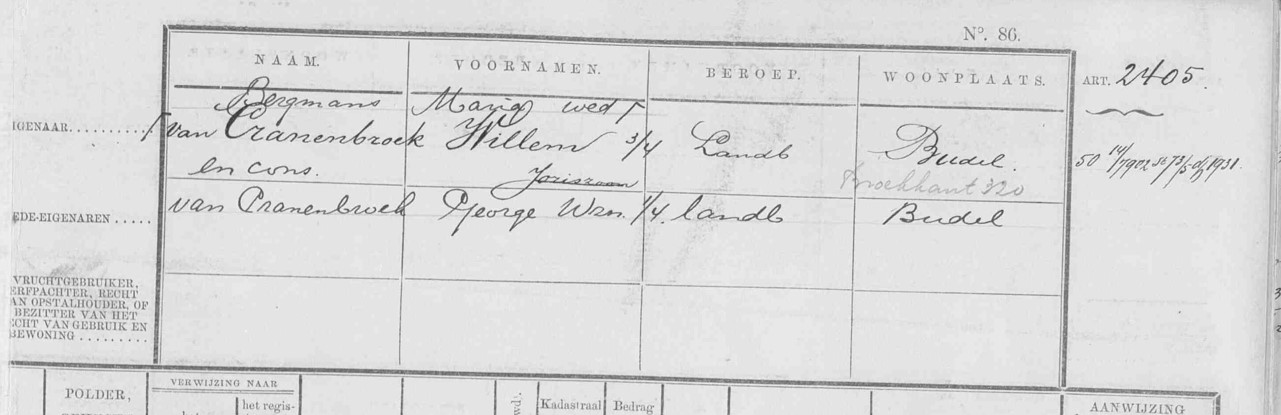 Nº. 86.
NAAM. VOORNAMEN. BEROEP. WOONPLAATS. ART. 2405.
Bergmans Maria wed
IGENAAR.......... van Cranenbroek Willem 3/4 Landb Budel.
en cons. Joriszoon Broekkant 320
EDE-EIGENAREN ..... van Cranenbroek George Wzn. 1/4. landb Budel
VRUCHTGEBRUIKER,
ERFPACHTER, RECHT
AN OPSTALHOUDER, OF
BEZITTER VAN HET
ECHT VAN GEBRUIK EN
BEWONING .........
POLDER,
VERWIJZING NAAR
het regis-
wd.
Kadastraal
Bedrag
AANWIJZING